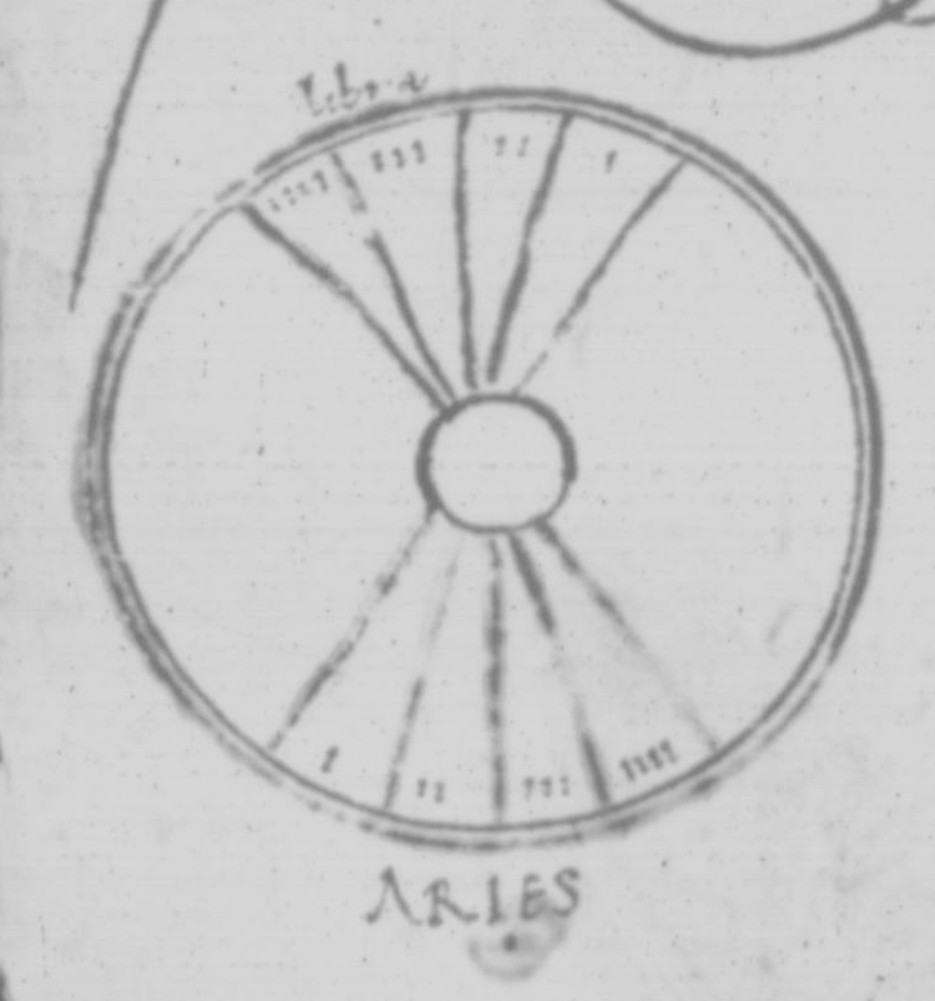 Libra
IIII III II I
I II III IIII
ARIES